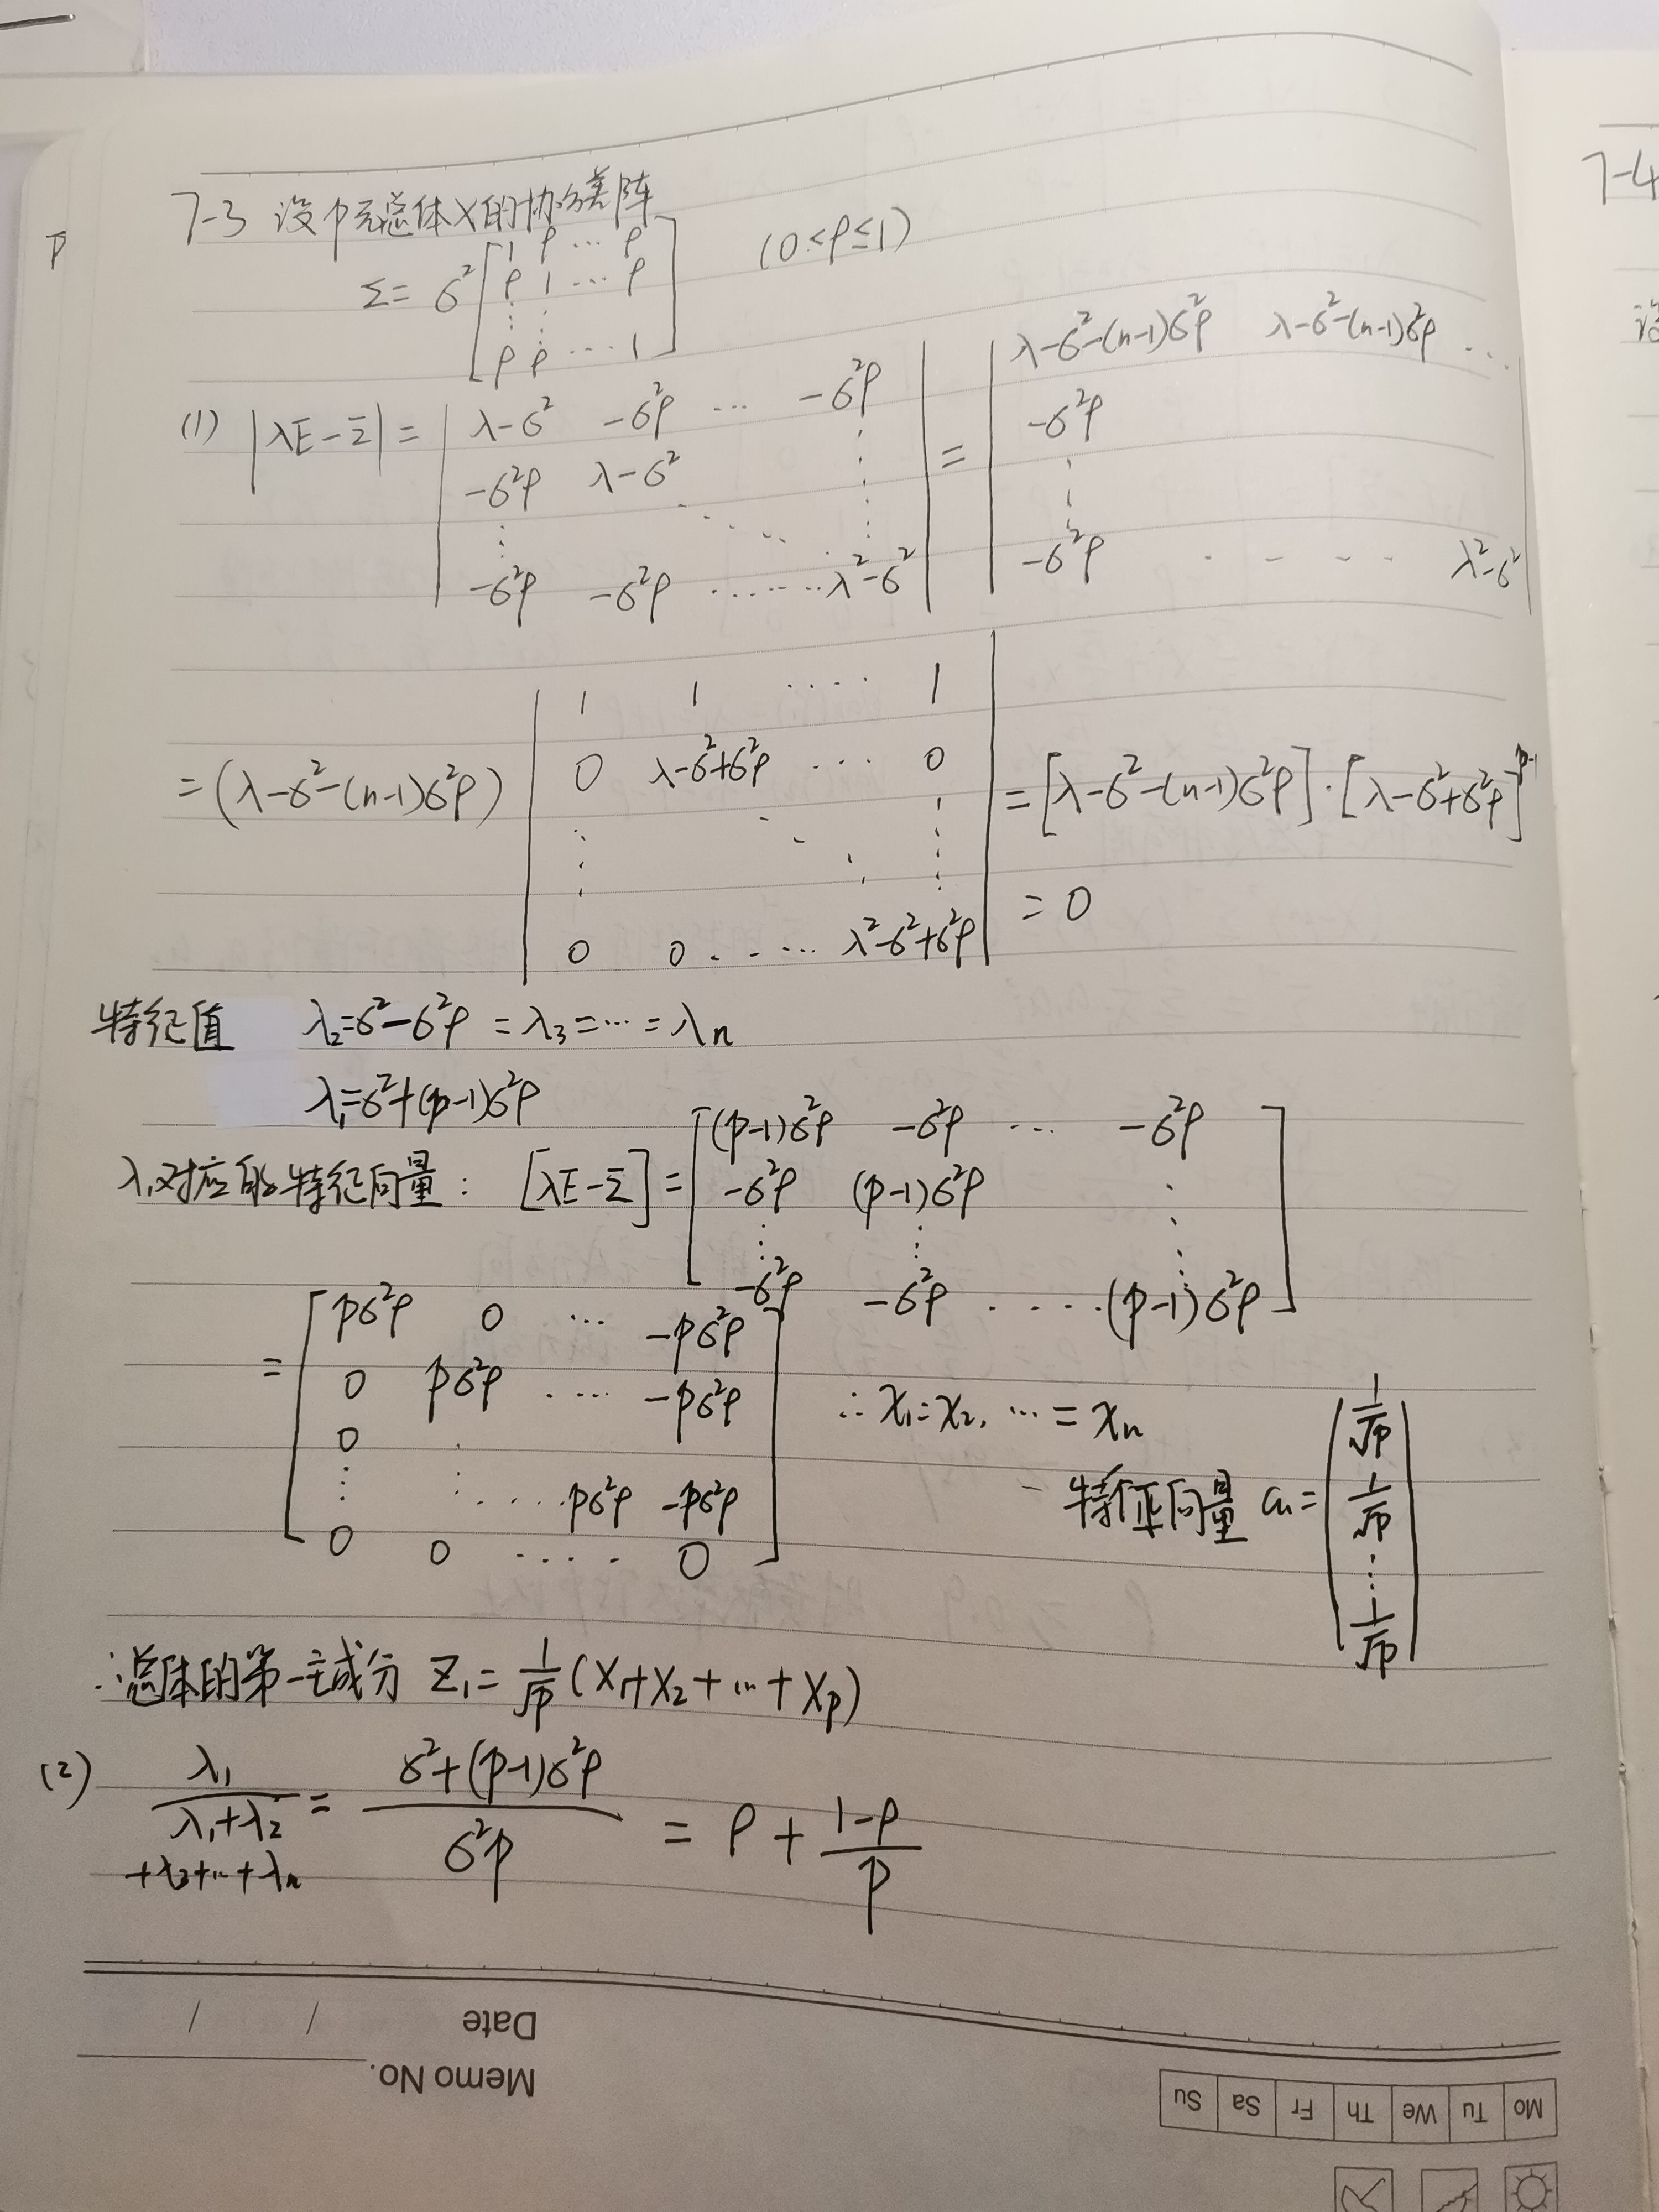 7-3 设p元总体X的协方差阵
Σ = σ² [1 ρ ⋯ ρ; ρ 1 ⋯ ρ; ⋮ ⋮; ρ ρ ⋯ 1] (0<ρ≤1)
(1) |λE-Σ| = |λ-σ² -σ²ρ ⋯ -σ²ρ; -σ²ρ λ-σ² ⋮; ⋮ ⋱ ⋮; -σ²ρ -σ²ρ ⋯⋯ λ²-σ²| = |λ-σ²-(n-1)σ²ρ λ-σ²-(n-1)σ²ρ ⋯; -σ²ρ; ⋮; -σ²ρ ⋯ λ²-σ²|
= (λ-σ²-(n-1)σ²ρ) |1 1 ⋯ 1; 0 λ-σ²+σ²ρ ⋯ 0; ⋮ ⋱ ⋮; 0 0 ⋯ λ²-σ²+σ²ρ| = [λ-σ²-(n-1)σ²ρ]·[λ-σ²+σ²ρ]^{p-1}
= 0
特征值 λ₂=σ²-σ²ρ = λ₃ = ⋯ = λn
λ₁=σ²+(p-1)σ²ρ
λ₁对应的特征向量: [λE-Σ] = [(p-1)σ²ρ -σ²ρ ⋯ -σ²ρ; -σ²ρ (p-1)σ²ρ ⋮; ⋮ ⋮ ⋮; -σ²ρ -σ²ρ ⋯⋯ (p-1)σ²ρ]
= [pσ²ρ 0 ⋯ -pσ²ρ; 0 pσ²ρ ⋯ -pσ²ρ; 0; ⋮ ⋮ ⋯ pσ²ρ -pσ²ρ; 0 0 ⋯⋯ 0] ∴ x₁=x₂, ⋯ = xn
特征向量 a₁ = (1/√p 1/√p ⋮ 1/√p)
∴总体的第一主成分 Z₁ = 1/√p (X₁+X₂+⋯+Xp)
(2) λ₁/(λ₁+λ₂+λ₃+⋯+λn) = (σ²+(p-1)σ²ρ)/(σ²p) = ρ + (1-ρ)/p
Date / /
Memo No.
Mo Tu We Th Fr Sa Su
P
7-4